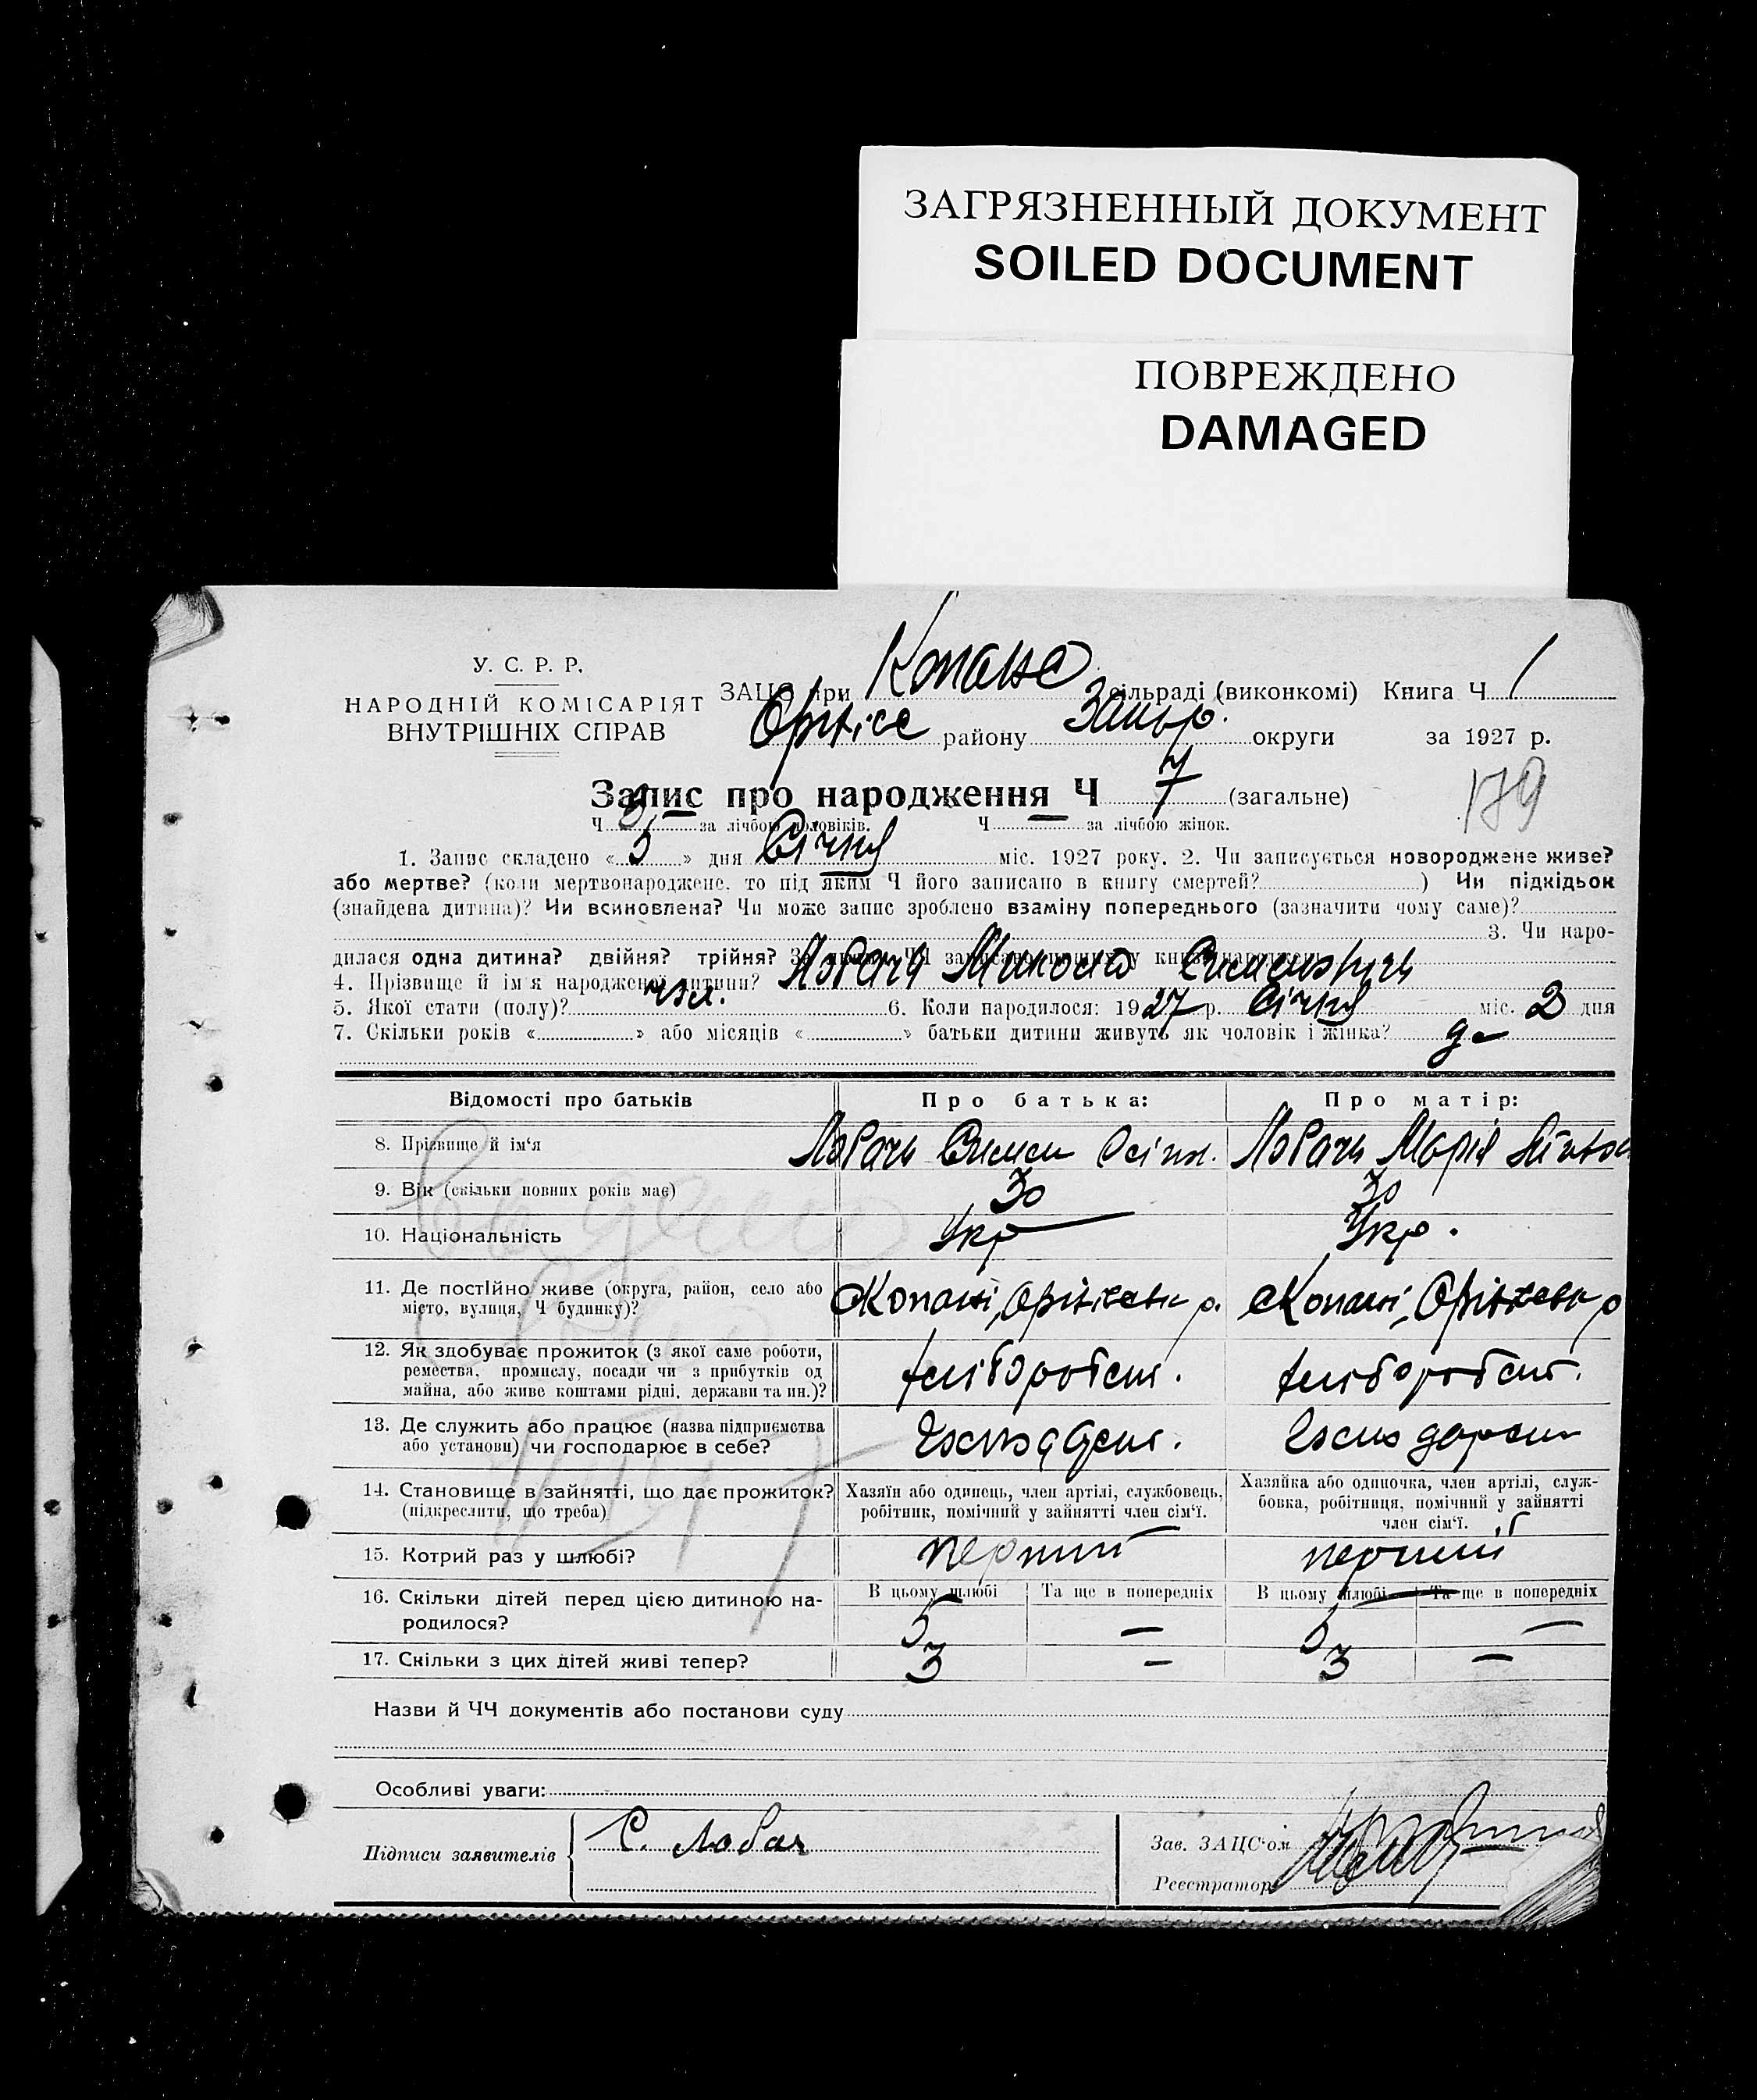 ЗАГРЯЗНЕННЫЙ ДОКУМЕНТ
SOILED DOCUMENT
ПОВРЕЖДЕНО
DAMAGED
У. С. Р. Р.
НАРОДНІЙ КОМІСАРІЯТ
ВНУТРІШНІХ СПРАВ
ЗАЦС при Копане сільраді (виконкомі) Книга Ч 1
Оріхівс району Запор. округи за 1927 р.
Запис про народження Ч 7 (загальне)
179
Ч 3 за лічбою чоловіків. Ч — за лічбою жінок.
1. Запис складено «5» дня Січня міс. 1927 року. 2. Чи записується новороджене живе?
або мертве? (коли мертвонароджене, то під яким Ч його записано в книгу смертей? ) Чи підкідьок
(знайдена дитина)? Чи всиновлена? Чи може запис зроблено взаміну попереднього (зазначити чому саме)?
3. Чи наро-
дилася одна дитина? двійня? трійня? За яким ЧЧ записано інших у книгу народжень
4. Прізвище й ім'я народженої дитини? Лобач Микола Симонович
5. Якої стати (полу)? чол. 6. Коли народилося: 1927 р. Січня міс. 2 дня
7. Скільки років « » або місяців « » батьки дитини живуть як чоловік і жінка? да
Відомості про батьків Про батька: Про матір:
8. Прізвище й ім'я Лобач Симон Осіпов. Лобач Марія
9. Вік (скільки повних років має) 30 30
10. Національність Укр Укр.
11. Де постійно живе (округа, район, село або місто, вулиця, Ч будинку)? Копані, Оріхівськ р. Копані, Оріхівськ р
12. Як здобуває прожиток (з якої саме роботи, ремества, промислу, посади чи з прибутків од майна, або живе коштами рідні, держави та ин.)? хліборобст. хліборобст.
13. Де служить або працює (назва підприємства або установи) чи господарює в себе?
14. Становище в зайнятті, що дає прожиток? (підкреслити, що треба) Хазяїн або одинець, член артілі, службовець, робітник, помічний у зайнятті член сім'ї. Хазяйка або одиночка, член артілі, служ-бовка, робітниця, помічний у зайнятті член сім'ї.
15. Котрий раз у шлюбі? перший перший
16. Скільки дітей перед цією дитиною на-родилося? В цьому шлюбі Та ще в попередніх В цьому шлюбі Та ще в попередніх
5 — 5 —
17. Скільки з цих дітей живі тепер? 3 — 3 —
Назви й ЧЧ документів або постанови суду
Особливі уваги:
Підписи заявителів С. Лобач
Зав. ЗАЦС'ом
Реєстратор